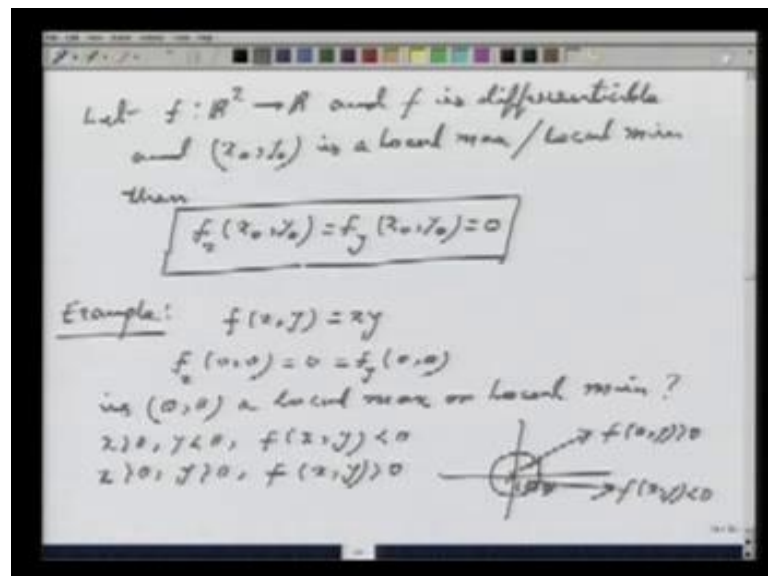 Let f : R² → R and f is differentiable
and (x₀, y₀) is a local max / local min
then
fₓ(x₀, y₀) = f_y(x₀, y₀) = 0
Example: f(x, y) = xy
fₓ(0,0) = 0 = f_y(0,0)
is (0,0) a local max or local min ?
x > 0, y < 0, f(x, y) < 0
x > 0, y > 0, f(x, y) > 0
f(x,y) > 0
f(x,y) < 0